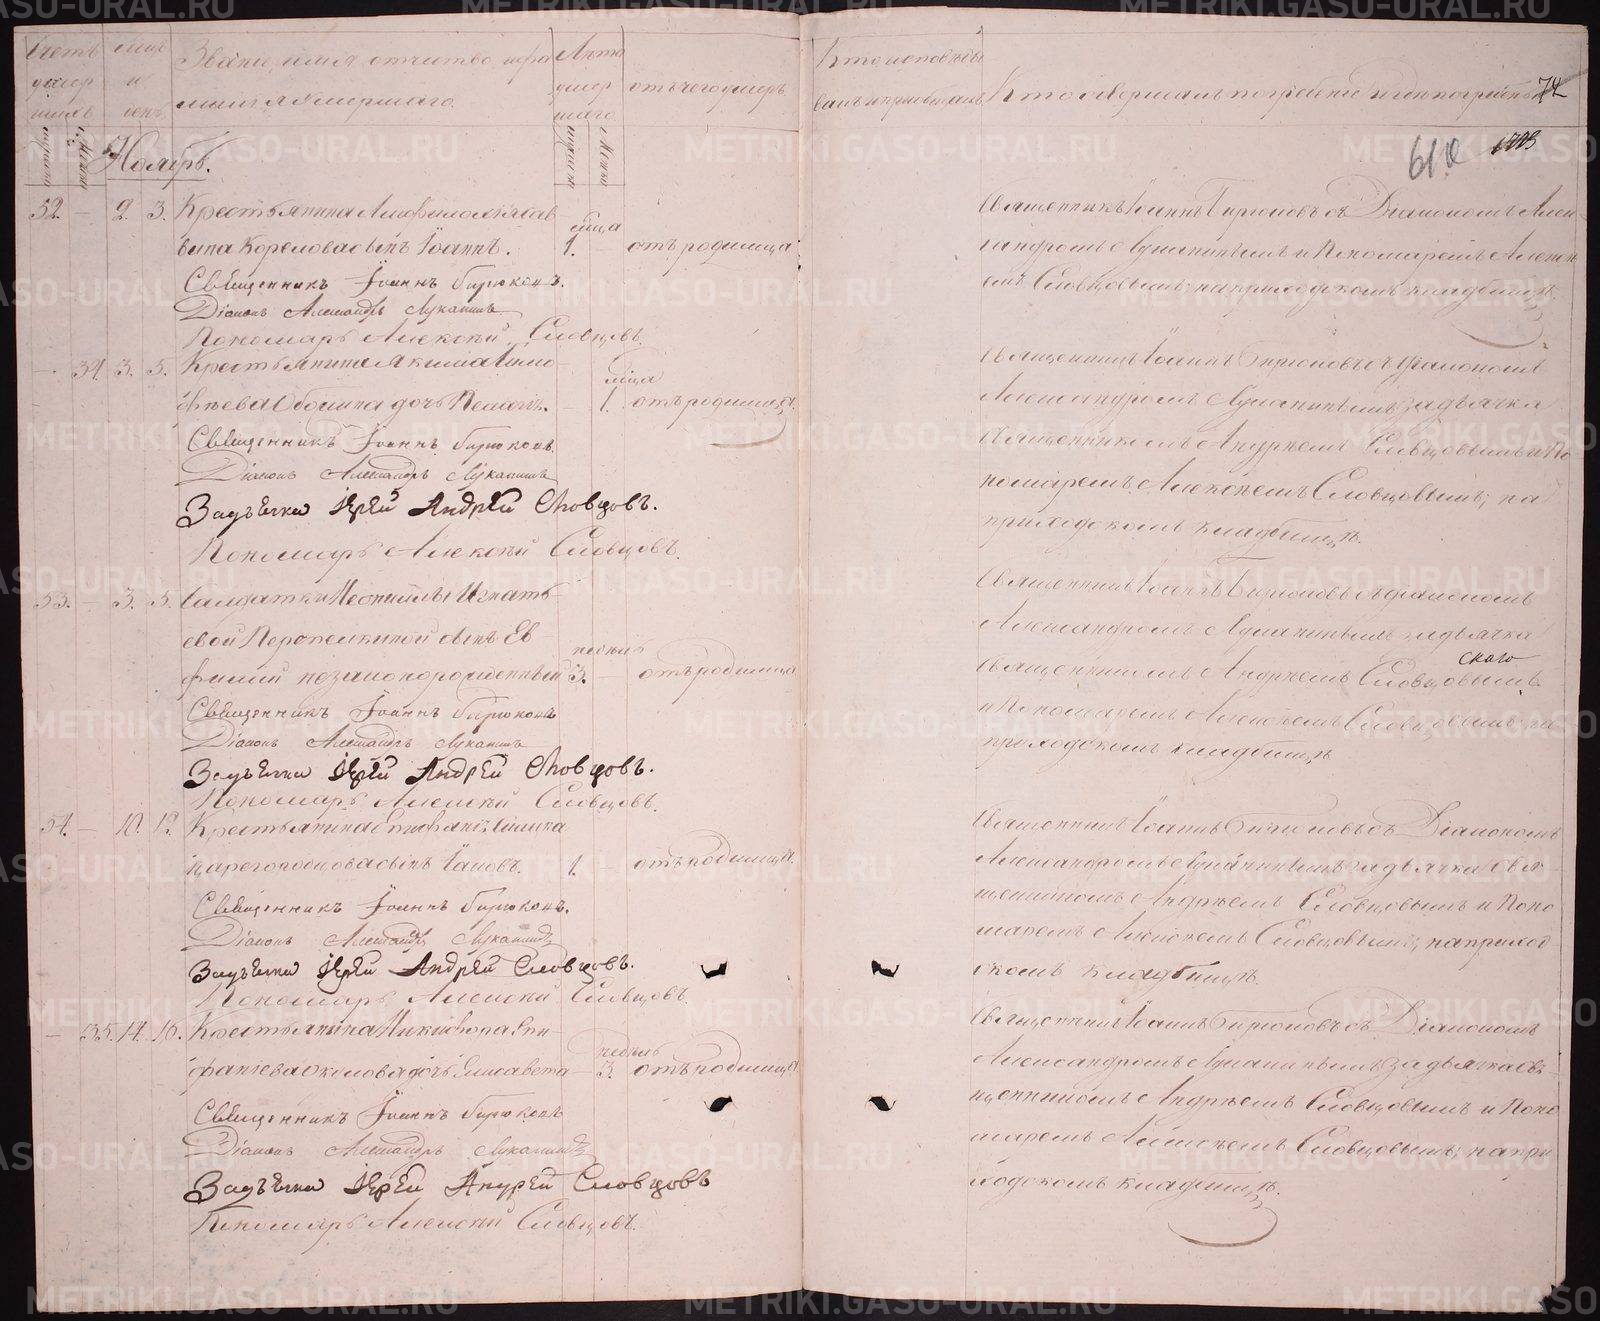 Счетъ умершихъ
Мѣс. и день
Званіе, имя, отчество и фамилія умершаго.
Лѣта умершаго
отъ чего умеръ
Кто исповѣдывалъ и пріобщалъ
Кто совершалъ погребеніе и гдѣ погребены
74
610
Ноябрь.
52. — 2. 3. Крестьянина
сына Іоаннъ.
мѣсяца
1. — отъ родимца
Священникъ Іоаннъ Бирюковъ.
Діаконъ Александръ Луканинъ
Пономарь Алексѣй Словцовъ.
Священникъ Іоаннъ Бирюковъ съ Діакономъ Алек-
сандромъ Луканинымъ и Пономаремъ Алексѣ-
емъ Словцовымъ; на приходскомъ кладбищѣ.
— 34. 3. 5. Крестьянина Акима Тимо-
фѣева дочь
мѣсяца
1. отъ родимца.
Священникъ Іоаннъ Бирюковъ.
Діаконъ Александръ Луканинъ
Задьячка Іерей Андрей Словцовъ.
Пономарь Алексѣй Словцовъ.
Священникъ Іоаннъ Бирюковъ съ діакономъ
Александромъ Луканинымъ задьячка
священникомъ Андреемъ Словцовымъ и По-
номаремъ Алексѣемъ Словцовымъ; на
приходскомъ кладбищѣ.
53. — 3. 5. Солдатки Неонилы Игнать-
евой сынъ Ев-
фимій незаконорожденный
недѣль
3. — отъ родимца
Священникъ Іоаннъ Бирюковъ
Діаконъ Александръ Луканинъ
Задьячка Іерей Андрей Словцовъ.
Пономарь Алексѣй Словцовъ.
Священникъ Іоаннъ Бирюковъ съ діакономъ
Александромъ Луканинымъ задьячка
священникомъ Андреемъ Словцовымъ
и Пономаремъ Алексѣемъ Словцовымъ; на
приходскомъ кладбищѣ
54. — 10. 12. Крестьянина
Царегородцова сынъ Іаковъ.
1. отъ родимца.
Священникъ Іоаннъ Бирюковъ.
Діаконъ Александръ Луканинъ
Задьячка Іерей Андрей Словцовъ.
Пономарь Алексѣй Словцовъ.
Священникъ Іоаннъ Бирюковъ съ Діакономъ
Александромъ Луканинымъ задьячка свя-
щенникомъ Андреемъ Словцовымъ и Поно-
маремъ Алексѣемъ Словцовымъ; на приход-
скомъ кладбищѣ.
— 35. 14. 16. Крестьянина Никифора Епи-
фаніева дочь Елисавета
недѣль
3. отъ родимца
Священникъ Іоаннъ Бирюковъ
Діаконъ Александръ Луканинъ
Задьячка Іерей Андрей Словцовъ
Пономарь Алексѣй Словцовъ.
Священникъ Іоаннъ Бирюковъ съ Діакономъ
Александромъ Луканинымъ задьячка свя-
щенникомъ Андреемъ Словцовымъ и Поно-
маремъ Алексѣемъ Словцовымъ; на при-
ходскомъ кладбищѣ.
METRIKI.GASO-URAL.RU